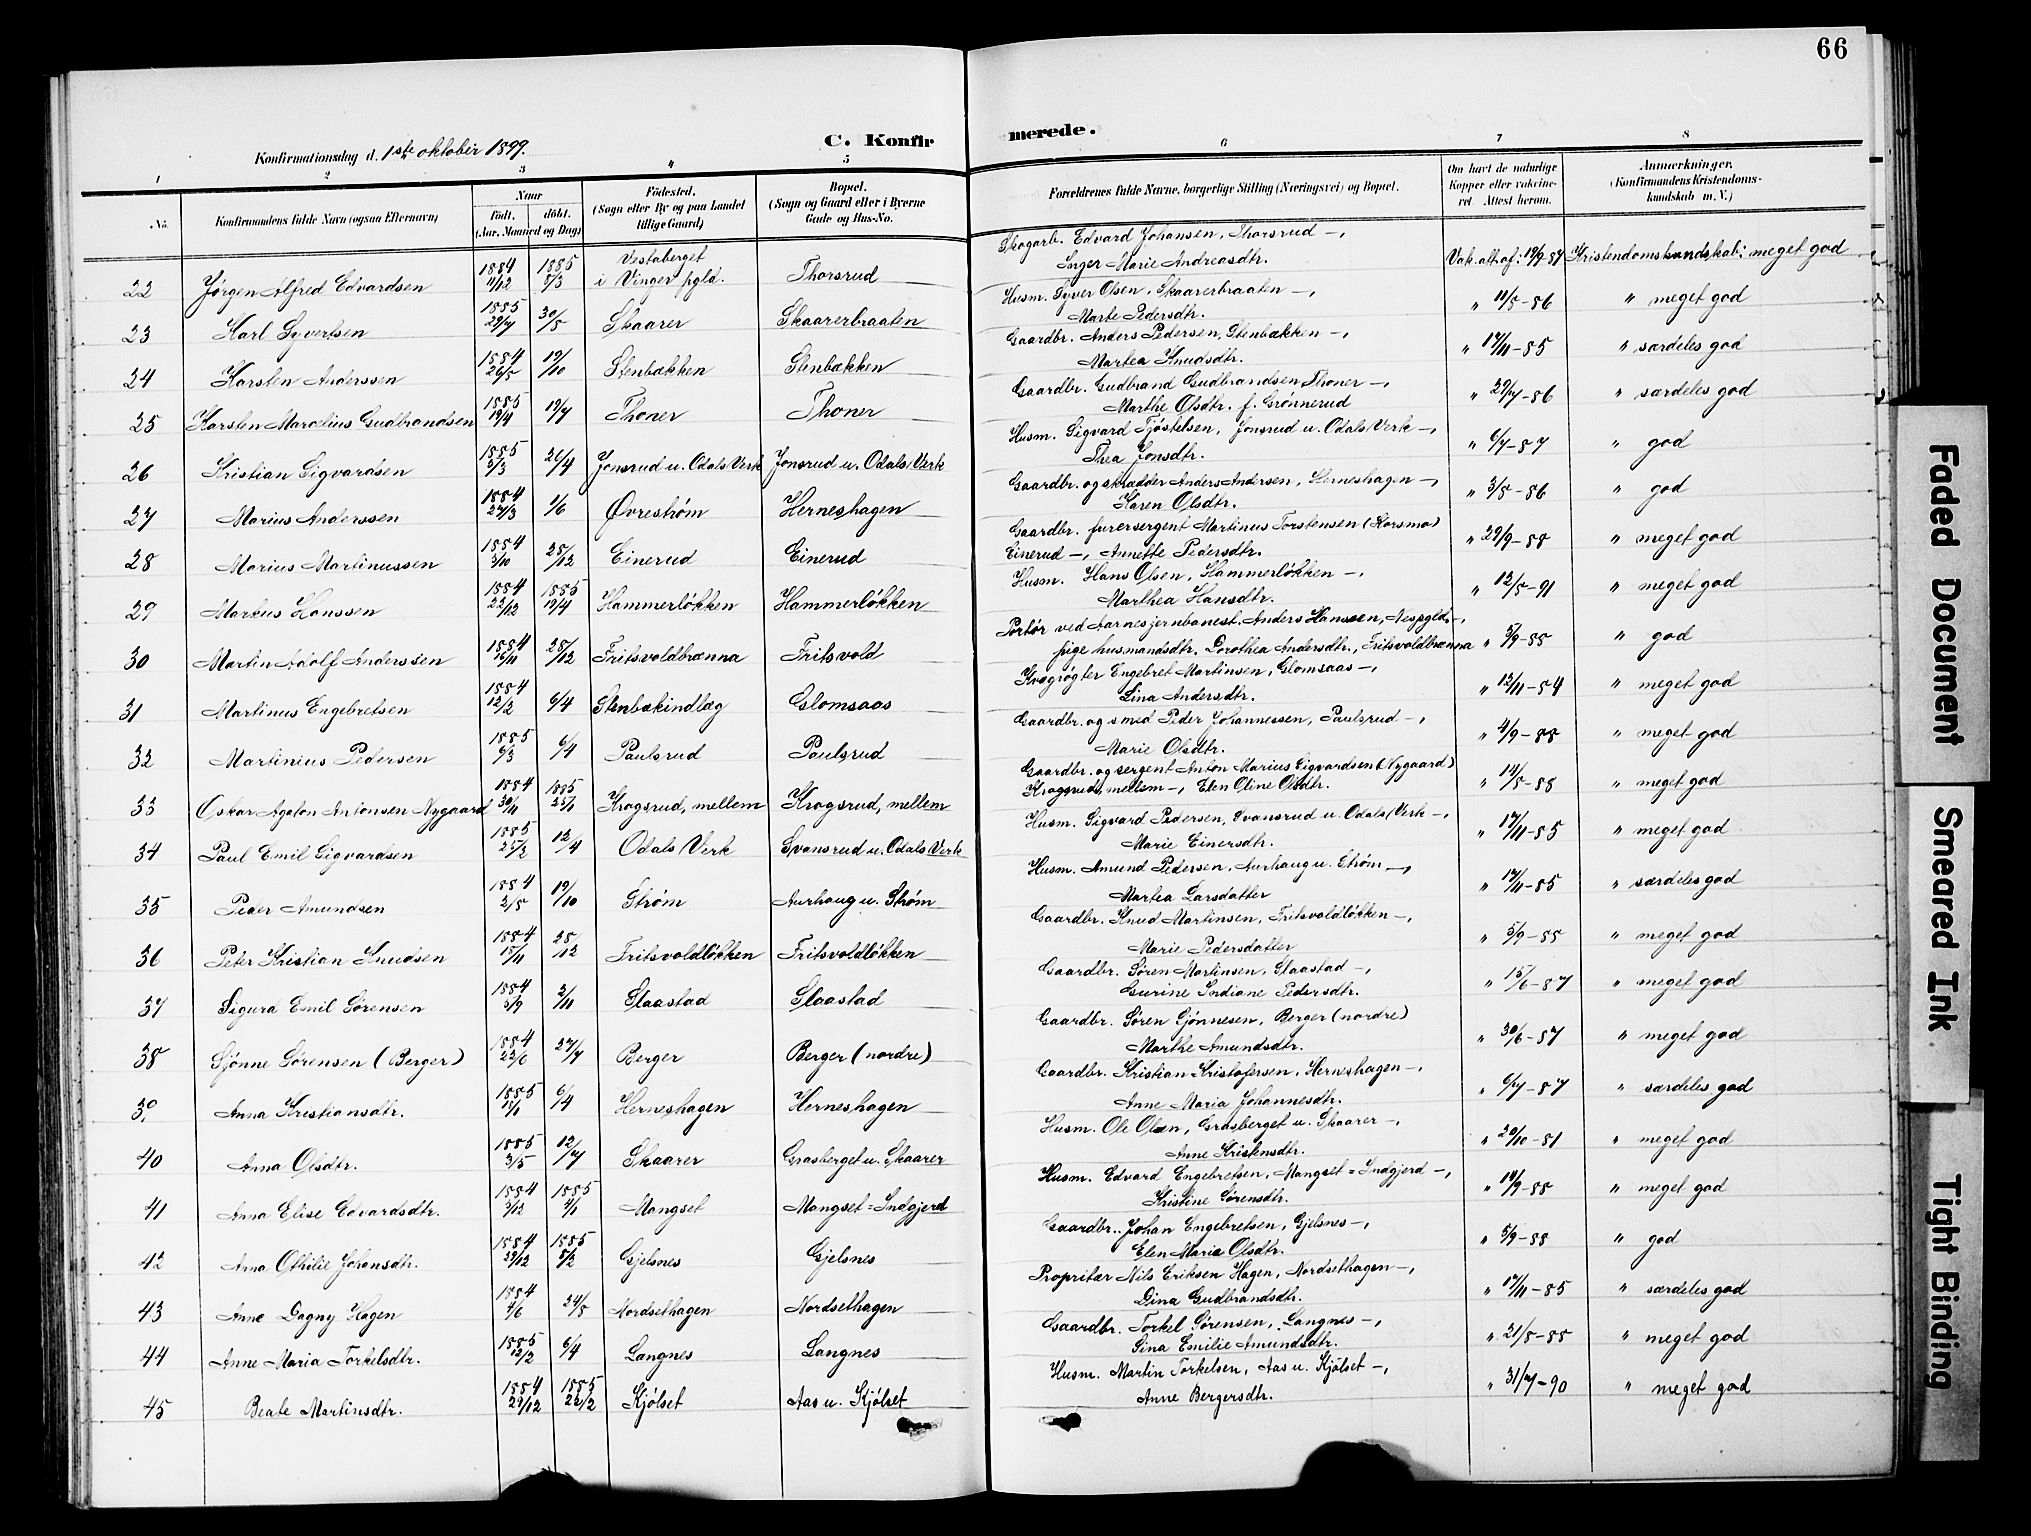 66
C. Konfirmerede.
Konfirmationsdag d. 1ste oktober 1899.
1 2 3 4 5 6 7 8
No. Konfirmandens fulde Navn (ogsaa Efternavn) Naar født. døbt. (Aar, Maaned og Dag) Fødested. (Sogn eller By og paa Landet tillige Gaard) Bopæl. (Sogn og Gaard eller i Byerne Gade og Hus-No. Forældrenes fulde Navne, borgerlige Stilling (Næringsvei) og Bopæl. Om havt de naturlige Kopper eller vakcineret. Attest herom. Anmærkninger. (Konfirmandens Kristendomskundskab m. V.)
22 Jørgen Alfred Edvardsen 1884 11/12 1885 8/3 Vestaberget i Vinger pgld. Thorsrud Skogarb. Edvard Johansen, Thorsrud —, Inger Marie Andreasdtr. Vak. att. af: 19/9-87 Kristendomskundskab: meget god
23 Karl Syvertsen 1885 29/4 30/5 Skaarer Skaarerbraaten Husm. Syver Olsen, Skaarerbraaten —, Marte Pedersdtr. " 11/5-86 " meget god
24 Karsten Anderssen 1884 26/5 19/10 Stenbækken Stenbækken Gaardbr. Anders Pedersen, Stenbækken —, Martea Knudsdtr. " 17/11-85 " særdeles god
25 Karsten Marcelius Gudbrandsen 1885 19/4 19/7 Thoner Thoner Gaardbr. Gudbrand Gudbrandsen Thoner —, Marthe Olsdtr. f. Grønnerud " 29/7-86 " særdeles god
26 Kristian Sigvardsen 1885 3/3 26/4 Jonsrud u. Odals Verk Jonsrud u. Odals Verk Husm. Sigvard Fjøstelsen, Jonsrud u. Odals Verk —, Thea Jonsdtr. " 6/7-87 " god
27 Marius Anderssen 1884 27/3 1/6 Øvrestrøm Herneshagen Gaardbr. og skrædder Anders Andersen, Herneshagen —, Karen Olsdtr. " 3/5-86 " god
28 Marius Martinussen 1884 3/10 28/12 Einerud Einerud Gaardbr. furersergent Martinus Torstensen (Korsmo) Einerud —, Annette Pedersdtr. " 29/9-88 " meget god
29 Markus Hanssen 1884 22/12 1885 19/4 Hammerløkken Hammerløkken Husm. Hans Olsen, Hammerløkken —, Marthea Hansdtr. " 12/5-91 " meget god
30 Martin Adolf Anderssen 1884 16/11 28/12 Fritsvoldbrænna Fritsvold Portør ved Aarnes jernbanest. Anders Hanssen, Nes pgld. —, pige husmandsdtr. Dorothea Andersdtr., Fritsvoldbrænna " 5/9-85 " god
31 Martinus Engebretsen 1884 12/2 6/4 Stenbækindlæg Glomsaas Kvægrøgter Engebret Martinsen, Glomsaas —, Lina Andersdtr. " 12/11-84 " meget god
32 Martinius Pedersen 1885 6/3 6/4 Paulsrud Paulsrud Gaardbr. og smed Peder Johannessen, Paulsrud —, Marie Olsdtr. " 4/9-88 " meget god
33 Oskar Agaton Antonsen Nygaard 1884 30/11 1885 25/1 Krogsrud, mellem Krogsrud, mellem Gaardbr. og sergent Anton Marius Sigvardsen (Nygaard) Krogsrud, mellem —, Elen Oline Olsdtr. " 14/5-88 " meget god
34 Paul Emil Sigvardsen 1885 25/2 12/4 Odals Verk Svansrud u. Odals Verk Husm. Sigvard Pedersen, Svansrud u. Odals Verk —, Marie Einersdtr. " 17/11-85 " meget god
35 Peder Amundsen 1884 2/5 19/10 Strøm Aurhaug u. Strøm Husm. Amund Pedersen, Aurhaug u. Strøm —, Martea Larsdatter " 17/11-85 " særdeles god
36 Peter Kristian Knudsen 1884 15/11 28/12 Fritsvoldløkken Fritsvoldløkken Gaardbr. Knud Martinsen, Fritsvoldløkken —, Marie Pedersdatter " 5/9-85 " meget god
37 Sigurd Emil Sørensen 1884 5/9 2/11 Slaastad Slaastad Gaardbr. Søren Martinsen, Slaastad —, Gurine Indiane Pedersdtr. " 15/6-87 " meget god
38 Sjønne Sørensen (Berger) 1884 22/6 27/7 Berger Berger (nordre) Gaardbr. Søren Sjønnesen, Berger (nordre) Marthe Amundsdtr. " 30/6-87 " meget god
39 Anna Kristiansdtr. 1885 15/1 6/4 Herneshagen Herneshagen Gaardbr. Kristian Kristofersen, Herneshagen —, Anne Maria Johannesdtr. " 6/7-87 " særdeles god
40 Anna Olsdtr. 1885 3/5 12/7 Skaarer Grasberget u. Skaarer Husm. Ole Olsen, Grasberget u. Skaarer —, Anne Kristensdtr. " 20/10-81 " meget god
41 Anna Elise Edvardsdtr. 1884 3/12 1885 4/1 Mangset Mangset=Indgjerd Husm. Edvard Engebretsen, Mangset=Indgjerd —, Kristine Sørensdtr. " 14/9-88 " meget god
42 Anna Othilie Johansdtr. 1884 29/12 1885 8/2 Gjelsnes Gjelsnes Gaardbr. Johan Engebretsen, Gjelsnes —, Elen Maria Olsdtr. " 5/9-88 " god
43 Anne Dagny Hagen 1884 4/6 24/8 Nordsethagen Nordsethagen Proprietær Nils Eriksen Hagen, Nordsethagen —, Dina Gudbrandsdtr. " 17/11-85 " særdeles god
44 Anne Maria Torkelsdtr. 1885 12/2 6/4 Langnes Langnes Gaardbr. Torkel Sørensen, Langnes —, Gina Emilie Amundsdtr. " 21/8-88 " meget god
45 Beate Martinsdtr. 1884 29/12 1885 22/2 Kjølset Aas u. Kjølset Husm. Martin Torkelsen, Aas u. Kjølset —, Anne Bergersdtr. " 31/7-90 " meget god
Faded Document
Smeared Ink
Tight Binding